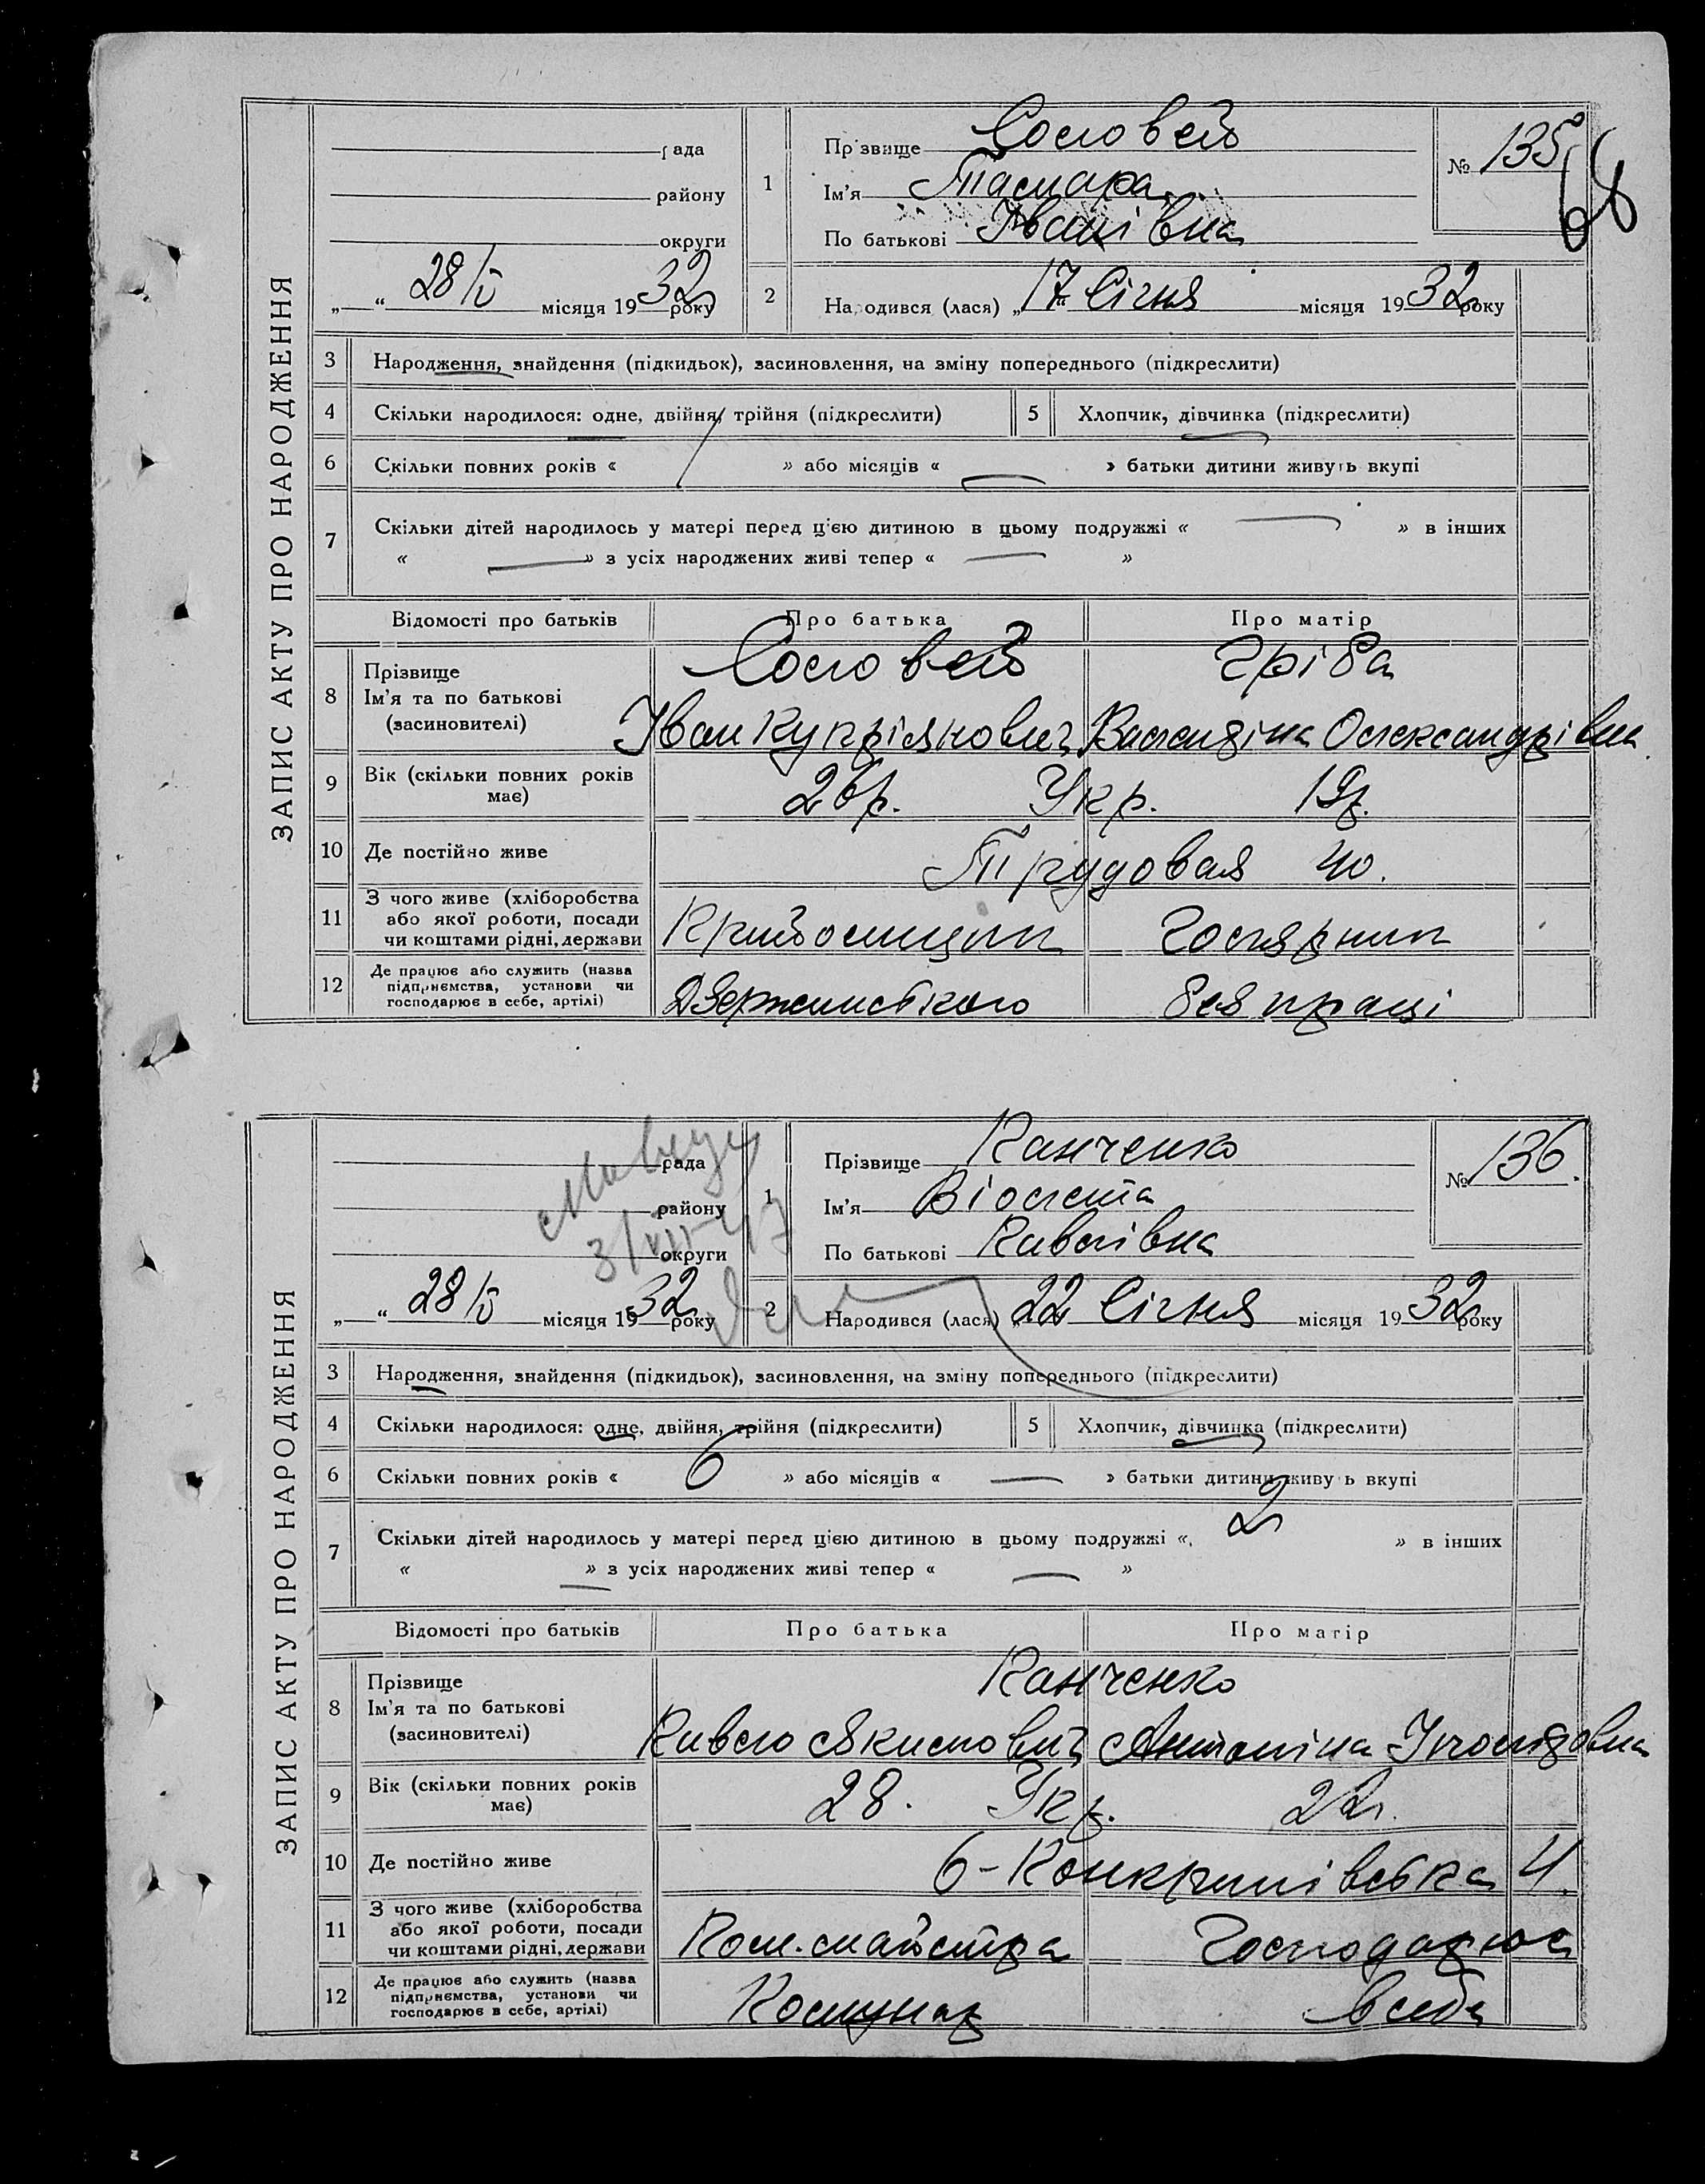 ЗАПИС АКТУ ПРО НАРОДЖЕННЯ
рада
району
округи
„ “ 28/І місяця 1932 року
1
Прізвище Соловей
Ім’я Тамара
По батькові Іванівна
№ 135
68
2
Народився (лася) „17 Січня місяця 1932 року
3 Народження, знайдення (підкидьок), засиновлення, на зміну попереднього (підкреслити)
4 Скільки народилося: одне, двійня, трійня (підкреслити)
5 Хлопчик, дівчинка (підкреслити)
6 Скільки повних років « / » або місяців « — » батьки дитини живуть вкупі
7 Скільки дітей народилось у матері перед цією дитиною в цьому подружжі « — » в інших
« — » з усіх народжених живі тепер « — »
Відомості про батьків Про батька Про матір
8 Прізвище Соловей Гріба
Ім’я та по батькові
(засиновителі) Іван Купріянович Валентіна Олександрівна
9 Вік (скільки повних років має) 26р. Укр. 19р.
10 Де постійно живе Трудовая 40.
11 З чого живе (хліборобства або якої роботи, посади чи коштами рідні, держави
12 Де працює або служить (назва підприємства, установи чи господарює в себе, артілі) Дзержинського без праці
ЗАПИС АКТУ ПРО НАРОДЖЕННЯ
рада
району
округи
3/VII-47
„ “ 28/І місяця 1932 року
1
Прізвище Канченко
Ім’я Віолета
По батькові Павлівна
№ 136.
2
Народився (лася) „22 Січня місяця 1932 року
3 Народження, знайдення (підкидьок), засиновлення, на зміну попереднього (підкреслити)
4 Скільки народилося: одне, двійня, трійня (підкреслити)
5 Хлопчик, дівчинка (підкреслити)
6 Скільки повних років « 6 » або місяців « — » батьки дитини живу ь вкупі
7 Скільки дітей народилось у матері перед цією дитиною в цьому подружжі « 2 » в інших
« — » з усіх народжених живі тепер « — »
Відомості про батьків Про батька Про матір
8 Прізвище Канченко
Ім’я та по батькові
(засиновителі) Павло Якимович Антоніна
9 Вік (скільки повних років має) 28. Укр. 22.
10 Де постійно живе 4.
11 З чого живе (хліборобства або якої роботи, посади чи коштами рідні, держави Пом. майстра Господарює
12 Де працює або служить (назва підприємства, установи чи господарює в себе, артілі) Комунар в себе